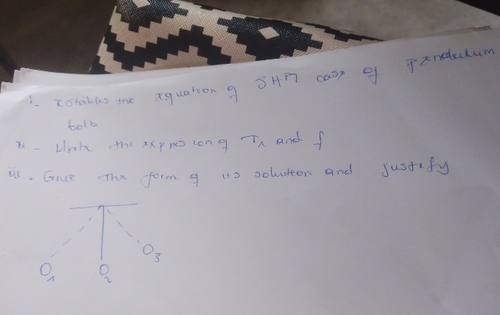 i- Establis the equation of SHM case of pendulum
bob
ii- Write the expression of T, and f
iii- Give the form of its solution and justify
O1 O2 O3